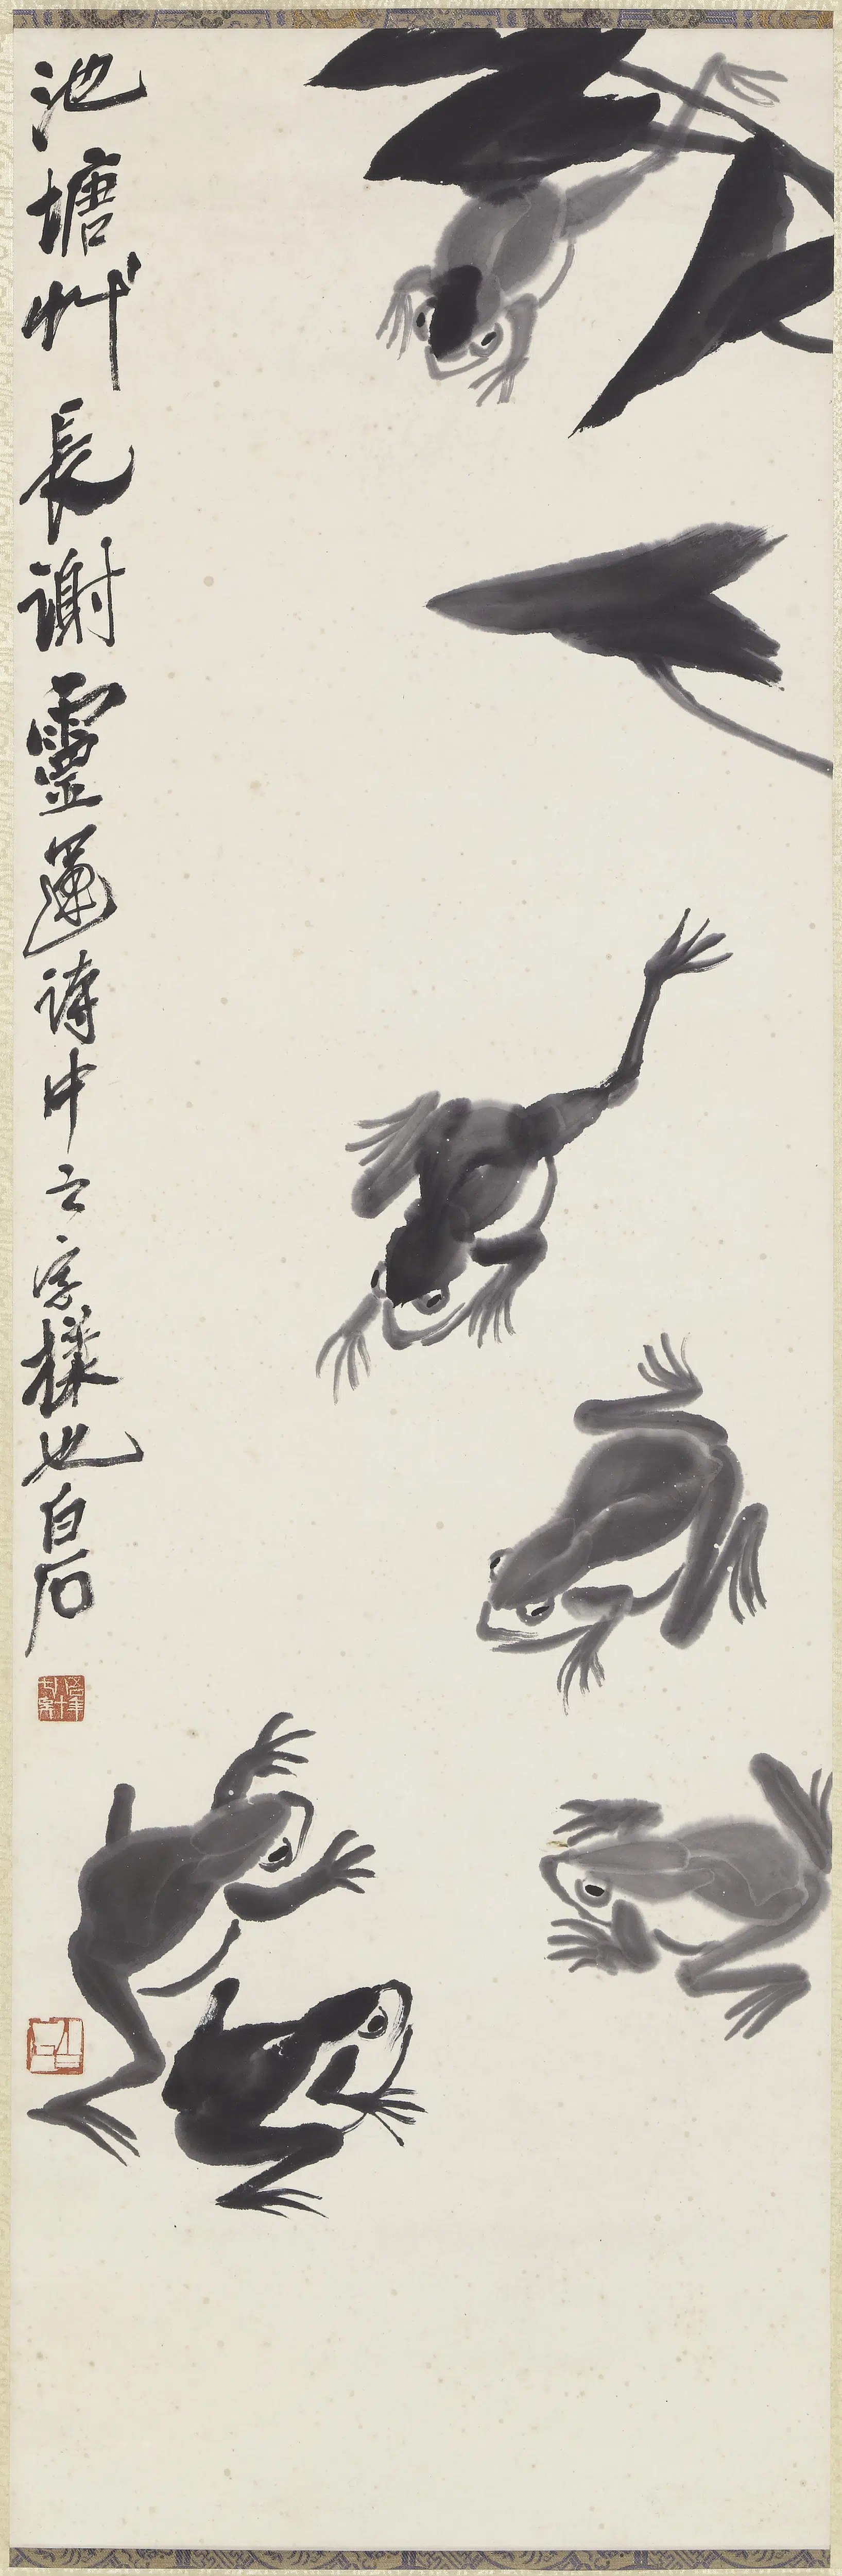 池塘艸長謝靈運詩中之字樣也白石